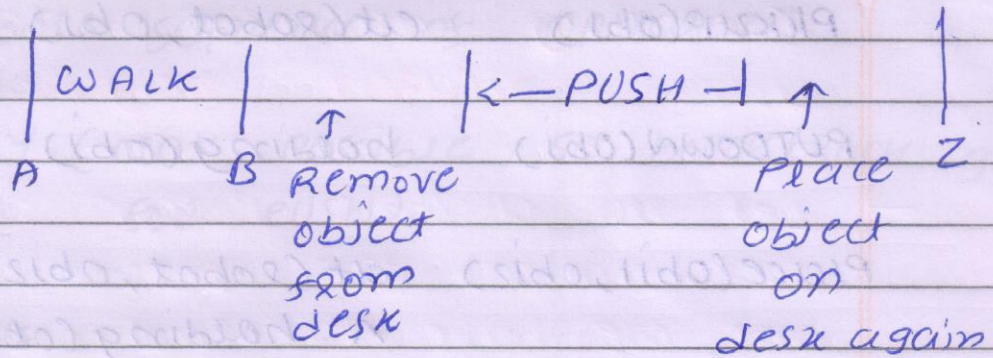 WALK
<— PUSH —|
A
B
Z
Remove
object
from
desk
Place
object
on
desk again